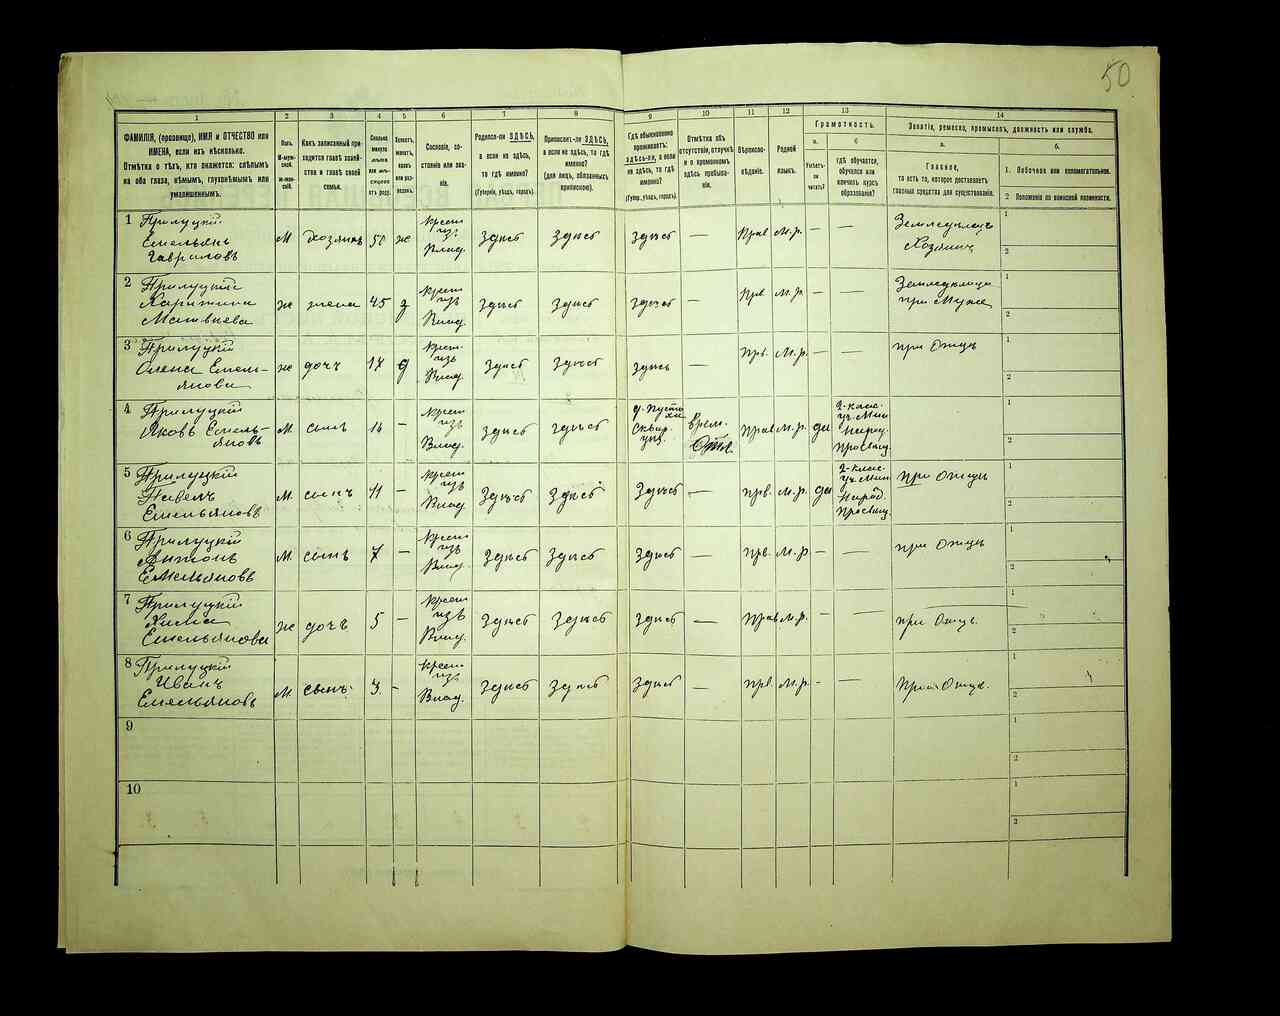 50
1 2 3 4 5 6 7 8 9 10 11 12 13 14
ФАМИЛІЯ, (прозвище), ИМЯ и ОТЧЕСТВО или
ИМЕНА, если ихъ нѣсколько.
Отмѣтка о тѣхъ, кто окажется: слѣпымъ
на оба глаза, нѣмымъ, глухонѣмымъ или
умалишеннымъ.
Полъ.
М-мужской.
Ж-женскій.
Какъ записанный приходится
главѣ хозяйства
и главѣ своей
семьи.
Сколько
минуло
лѣтъ
или мѣсяцевъ
отъ роду.
Холостъ,
женатъ,
вдовъ
или разведенъ.
Сословіе, состояніе
или званіе.
Родился-ли ЗДѢСЬ,
а если не здѣсь,
то гдѣ именно?
(Губернія, уѣздъ, городъ).
Приписанъ-ли ЗДѢСЬ,
а если не здѣсь, то гдѣ
именно?
(для лицъ, обязанныхъ
припискою).
Гдѣ обыкновенно
проживаетъ:
ЗДѢСЬ-ли, а если
не здѣсь, то гдѣ
именно?
(Губер., уѣздъ, городъ).
Отмѣтка объ
отсутствіи, отлучкѣ
и о временномъ
здѣсь пребываніи.
Вѣроисповѣданіе.
Родной
языкъ.
Грамотность.
а.
Умѣетъ-ли
читать?
б
гдѣ обучается,
обучался или
кончилъ курсъ
образованія?
Занятіе, ремесло, промыселъ, должность или служба.
а.
Главное,
то есть то, которое доставляетъ
главныя средства для существованія.
б.
1. Побочное или вспомогательное.
2 Положеніе по воинской повинности.
1 Прилуцкій
Емельянъ
Гавриловъ
М Хозяинъ 50 ж
Крест
изъ
Влад.
Здѣсь Здѣсь Здѣсь — Прав М.р. — —
Земледѣлецъ
Хозяинъ
1
2
2 Прилуцкій
Харитина
Матвѣева
ж жена 45 з
Крест
изъ
Влад.
Здѣсь Здѣсь Здѣсь — Прв М.р. — —
Земледѣлица
при Мужѣ
1
2
3 Прилуцкій
Олена Емельянова
ж дочъ 17 д
Крест
изъ
Влад.
Здѣсь Здѣсь Здѣсь Пр. М.р. — —
при Отцѣ
1
2
4 Прилуцкій
Яковъ Емельяновъ
М. сынъ 14 -
Крест
изъ
Влад.
Здѣсь Здѣсь
Сквир.
уѣз.
Врем.
Прав М.р. да
2-клас.
уч. Мин
Народ.
Просвищ.
1
2
5 Прилуцкій
Павелъ
Емельяновъ
М. сынъ 11 —
Крест
изъ
Влад.
Здѣсь Здѣсь Здѣсь — прв. М.р. да
2-клас.
уч. Мин
Народ.
Просвищ.
при Отцѣ
1
2
6 Прилуцкій
Антонъ
Емельяновъ
М. сынъ 7 —
Крест
изъ
Влад.
Здѣсь Здѣсь Здѣсь — пр. М.р —
при Отцѣ
1
2
7 Прилуцкій
Емельянова
ж дочъ 5 —
Крест
изъ
Влад.
Здѣсь Здѣсь Здѣсь — прав М.р. —
при Отцѣ.
1
2
8 Прилуцкій
Иванъ
Емельяновъ
М. сынъ 3 -
Крест
изъ
Влад.
Здѣсь Здѣсь Здѣсь — прв. М.р. - —
При Отцѣ.
1
2
9
1
2
10
1
2